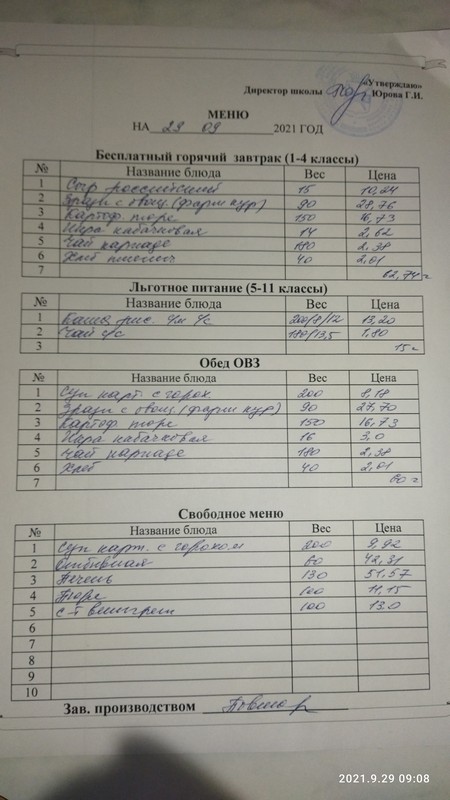 «Утверждаю»
Директор школы Юрова Г.И.
МЕНЮ
НА 29 09 2021 ГОД
Бесплатный горячий завтрак (1-4 классы)
№ Название блюда Вес Цена
1 Сыр российский 15 10,24
2 Зразы с овощ. (фарш кур) 90 28,76
3 Картоф. пюре 150 16,73
4 Икра кабачковая 14 2,62
5 Чай каркаде 180 2,38
6 Хлеб пшенич 40 2,01
7 62,74
Льготное питание (5-11 классы)
№ Название блюда Вес Цена
1 Каша рис. 200/8/12 13,20
2 Чай с/с 180/13,5 1,80
3 15
Обед ОВЗ
Название блюда Вес Цена
1 Суп карт. с горох 200 8,18
2 Зразы с овощ. (фарш кур) 90 27,70
3 Картоф. пюре 150 16,73
4 Икра кабачковая 16 3,0
5 Чай каркаде 180 2,38
6 Хлеб 40 2,01
7 60
Свободное меню
№ Название блюда Вес Цена
1 Суп карт. с горохом 200 9,92
2 Отбивная 60 42,31
3 Печень 130 51,57
4 Пюре 100 11,15
5 с-т винегрет 100 13,0
6
7
8
9
10
Зав. производством
2021.9.29 09:08